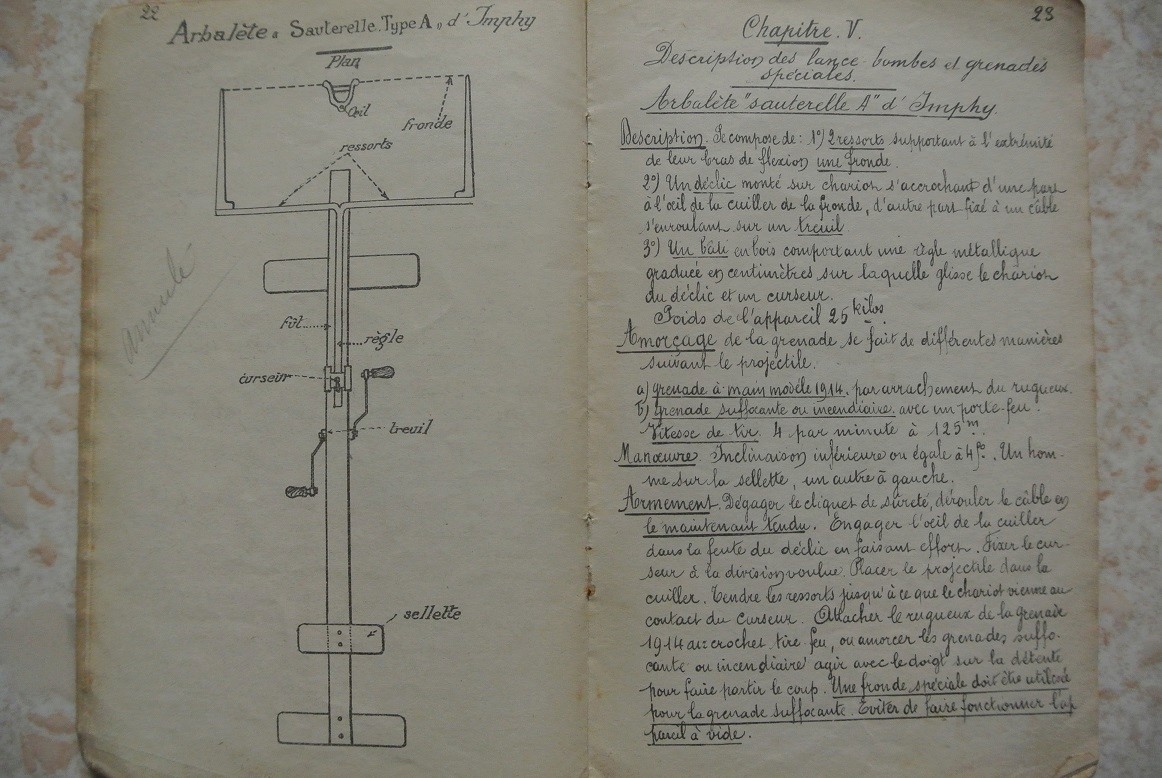 22
Arbalète "Sauterelle. Type A" d'Imphy
Plan
Œil
fronde
ressorts
fût
règle
curseur
treuil
sellette
annulé
23
Chapitre. V.
Description des lance-bombes et grenades
spéciales.
Arbalète "sauterelle A" d'Imphy.
Description. Se compose de: 1°) 2 ressorts supportant à l'extrémité
de leur bras de flexion une fronde.
2°) Un déclic monté sur chariot s'accrochant d'une part
à l'œil de la cuiller de la fronde, d'autre part fixé à un câble
s'enroulant sur un treuil.
3°) Un bâti en bois comportant une règle métallique
graduée en centimètres sur laquelle glisse le chariot
du déclic et un curseur.
Poids de l'appareil 25 kilos.
Amorçage de la grenade se fait de différentes manières
suivant le projectile.
a) grenade à main modèle 1914. par arrachement du rugueux.
b) grenade suffocante ou incendiaire avec un porte-feu.
Vitesse de tir. 4 par minute à 125m.
Manœuvre. Inclinaison inférieure ou égale à 45°. Un hom-
me sur la sellette, un autre à gauche.
Armement. Dégager le cliquet de sûreté, dérouler le câble en
le maintenant tendu. Engager l'œil de la cuiller
dans la fente du déclic en faisant effort. Fixer le cur-
seur à la division voulue. Placer le projectile dans la
cuiller. Tendre les ressorts jusqu'à ce que le chariot vienne au
contact du curseur. Attacher le rugueux de la grenade
1914 au crochet tire-feu, ou amorcer les grenades suffo-
cante ou incendiaire agir avec le doigt sur la détente
pour faire partir le coup. Une fronde spéciale doit être utilisée
pour la grenade suffocante. Eviter de faire fonctionner l'ap
pareil à vide.